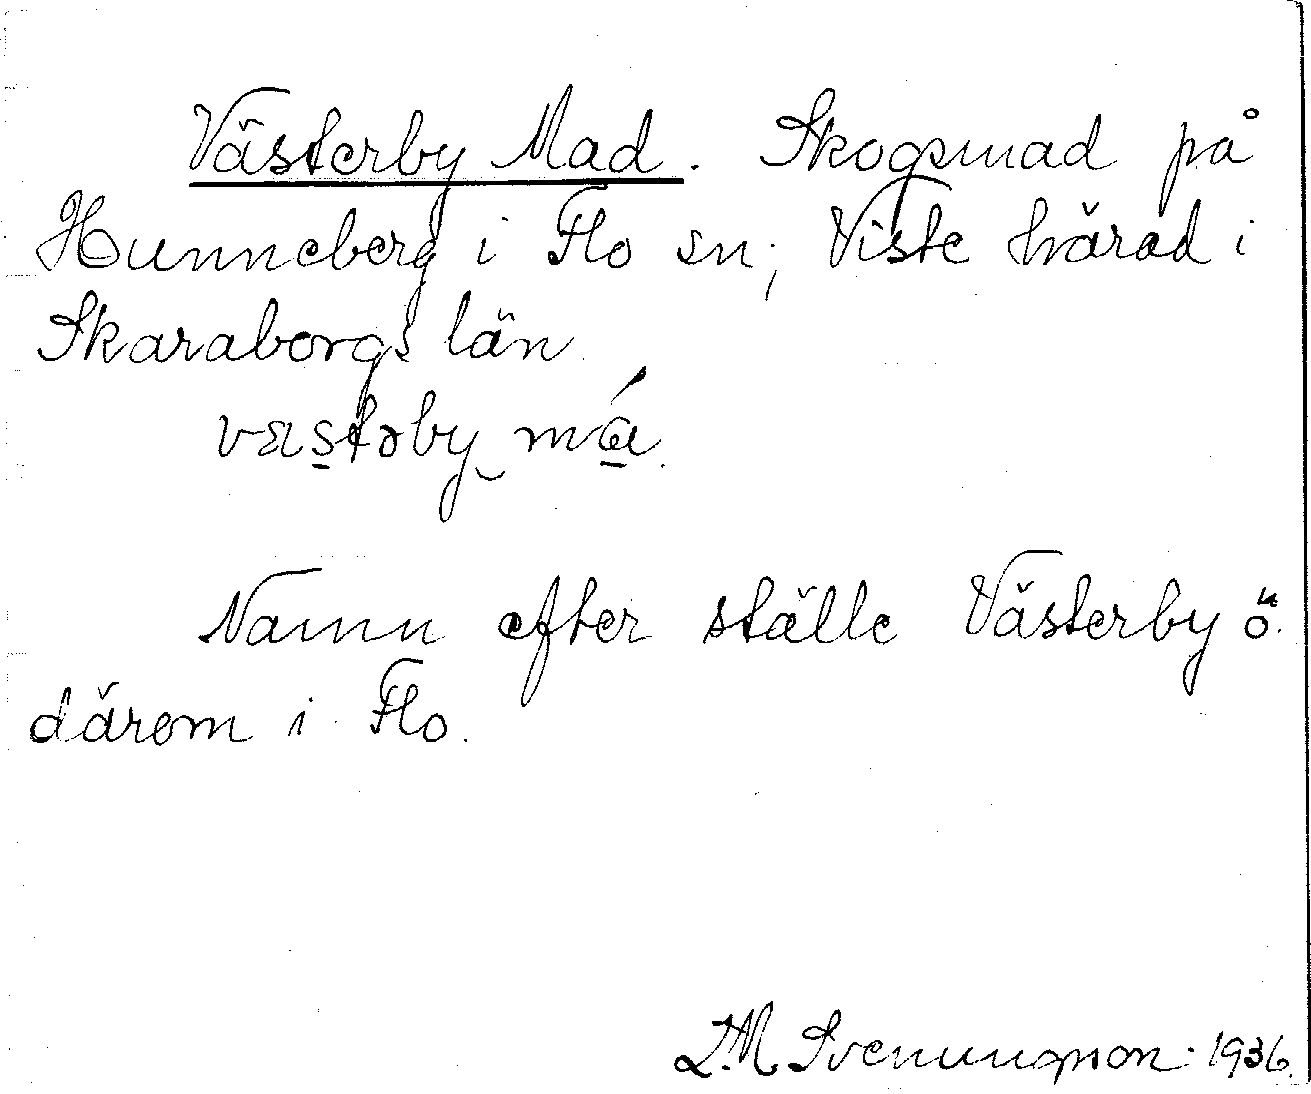 Västerby Mad. Skogsmad på
Hunneberg i Flo sn; Viste härad i
Skaraborgs län
væstəby má.
Namn efter ställe Västerby ö.
därom i Flo.
Svenungson. 1936.